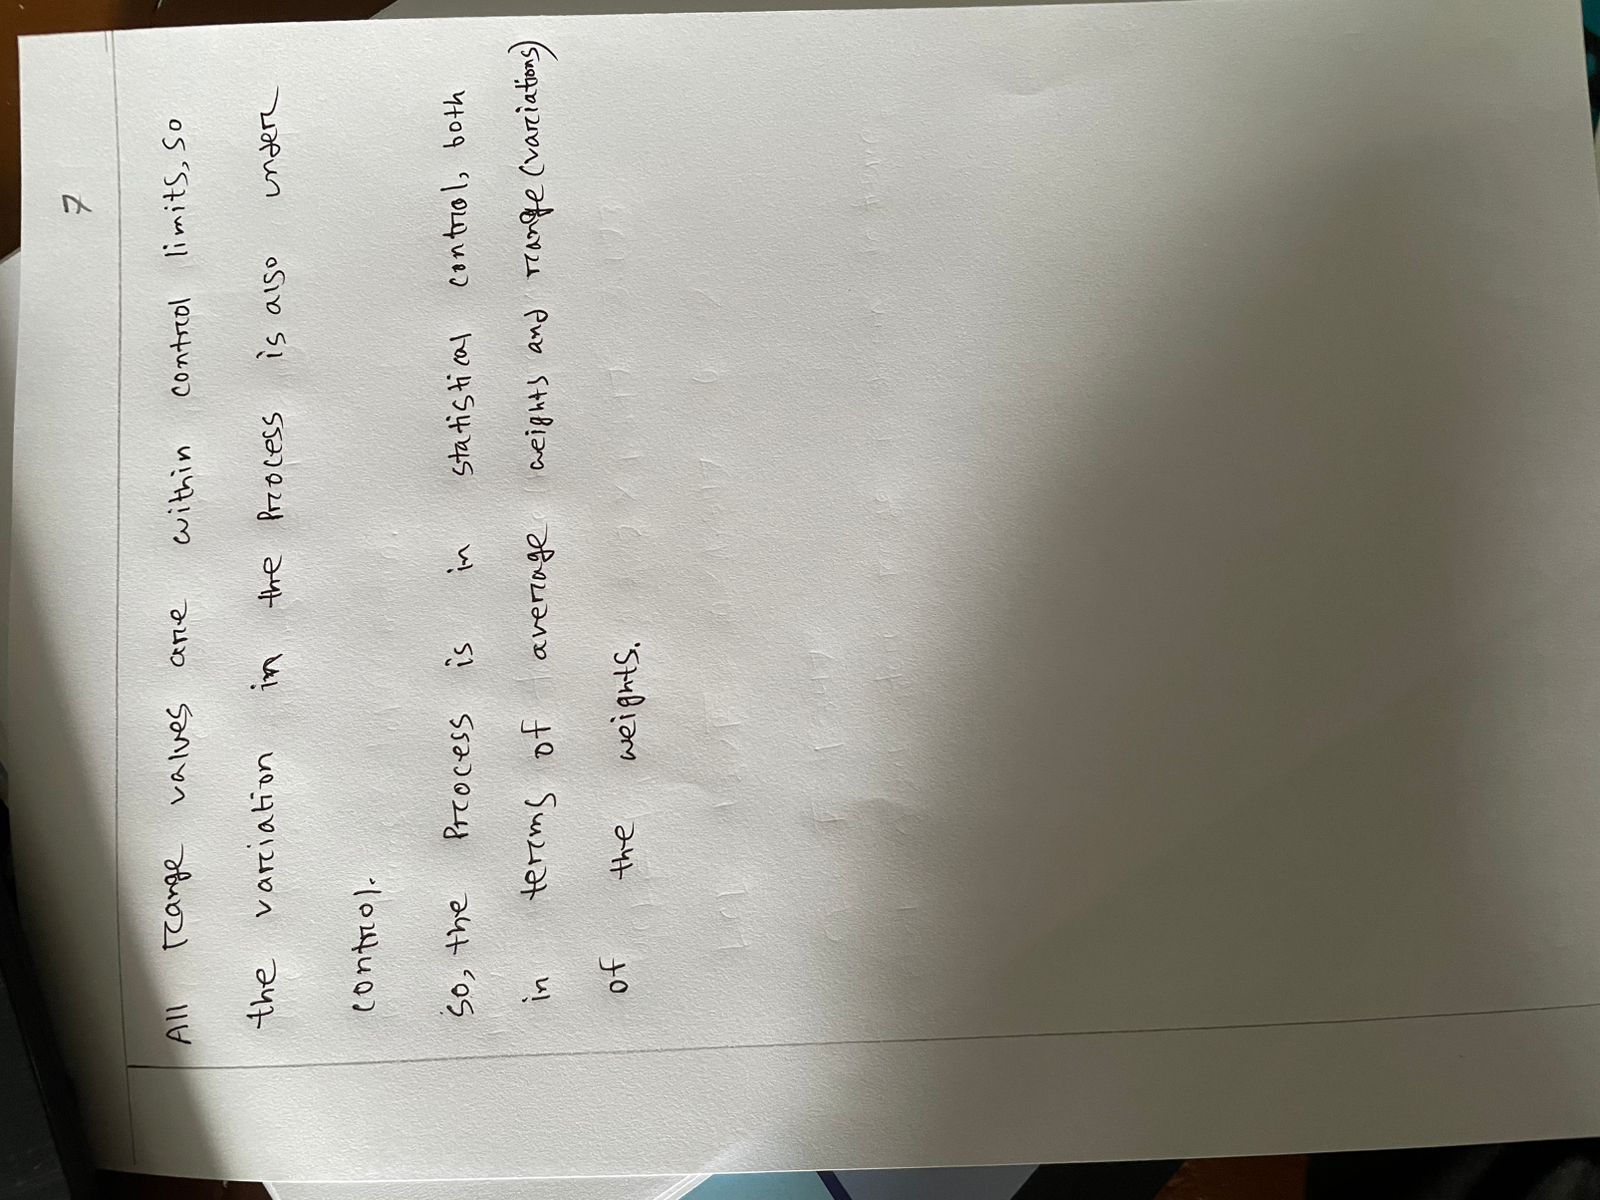 7
All range values are within control limits, so
the variation in the Process is also under
control.
So, the Process is in statistical control, both
in terms of average weights and range (variations)
of the weights.